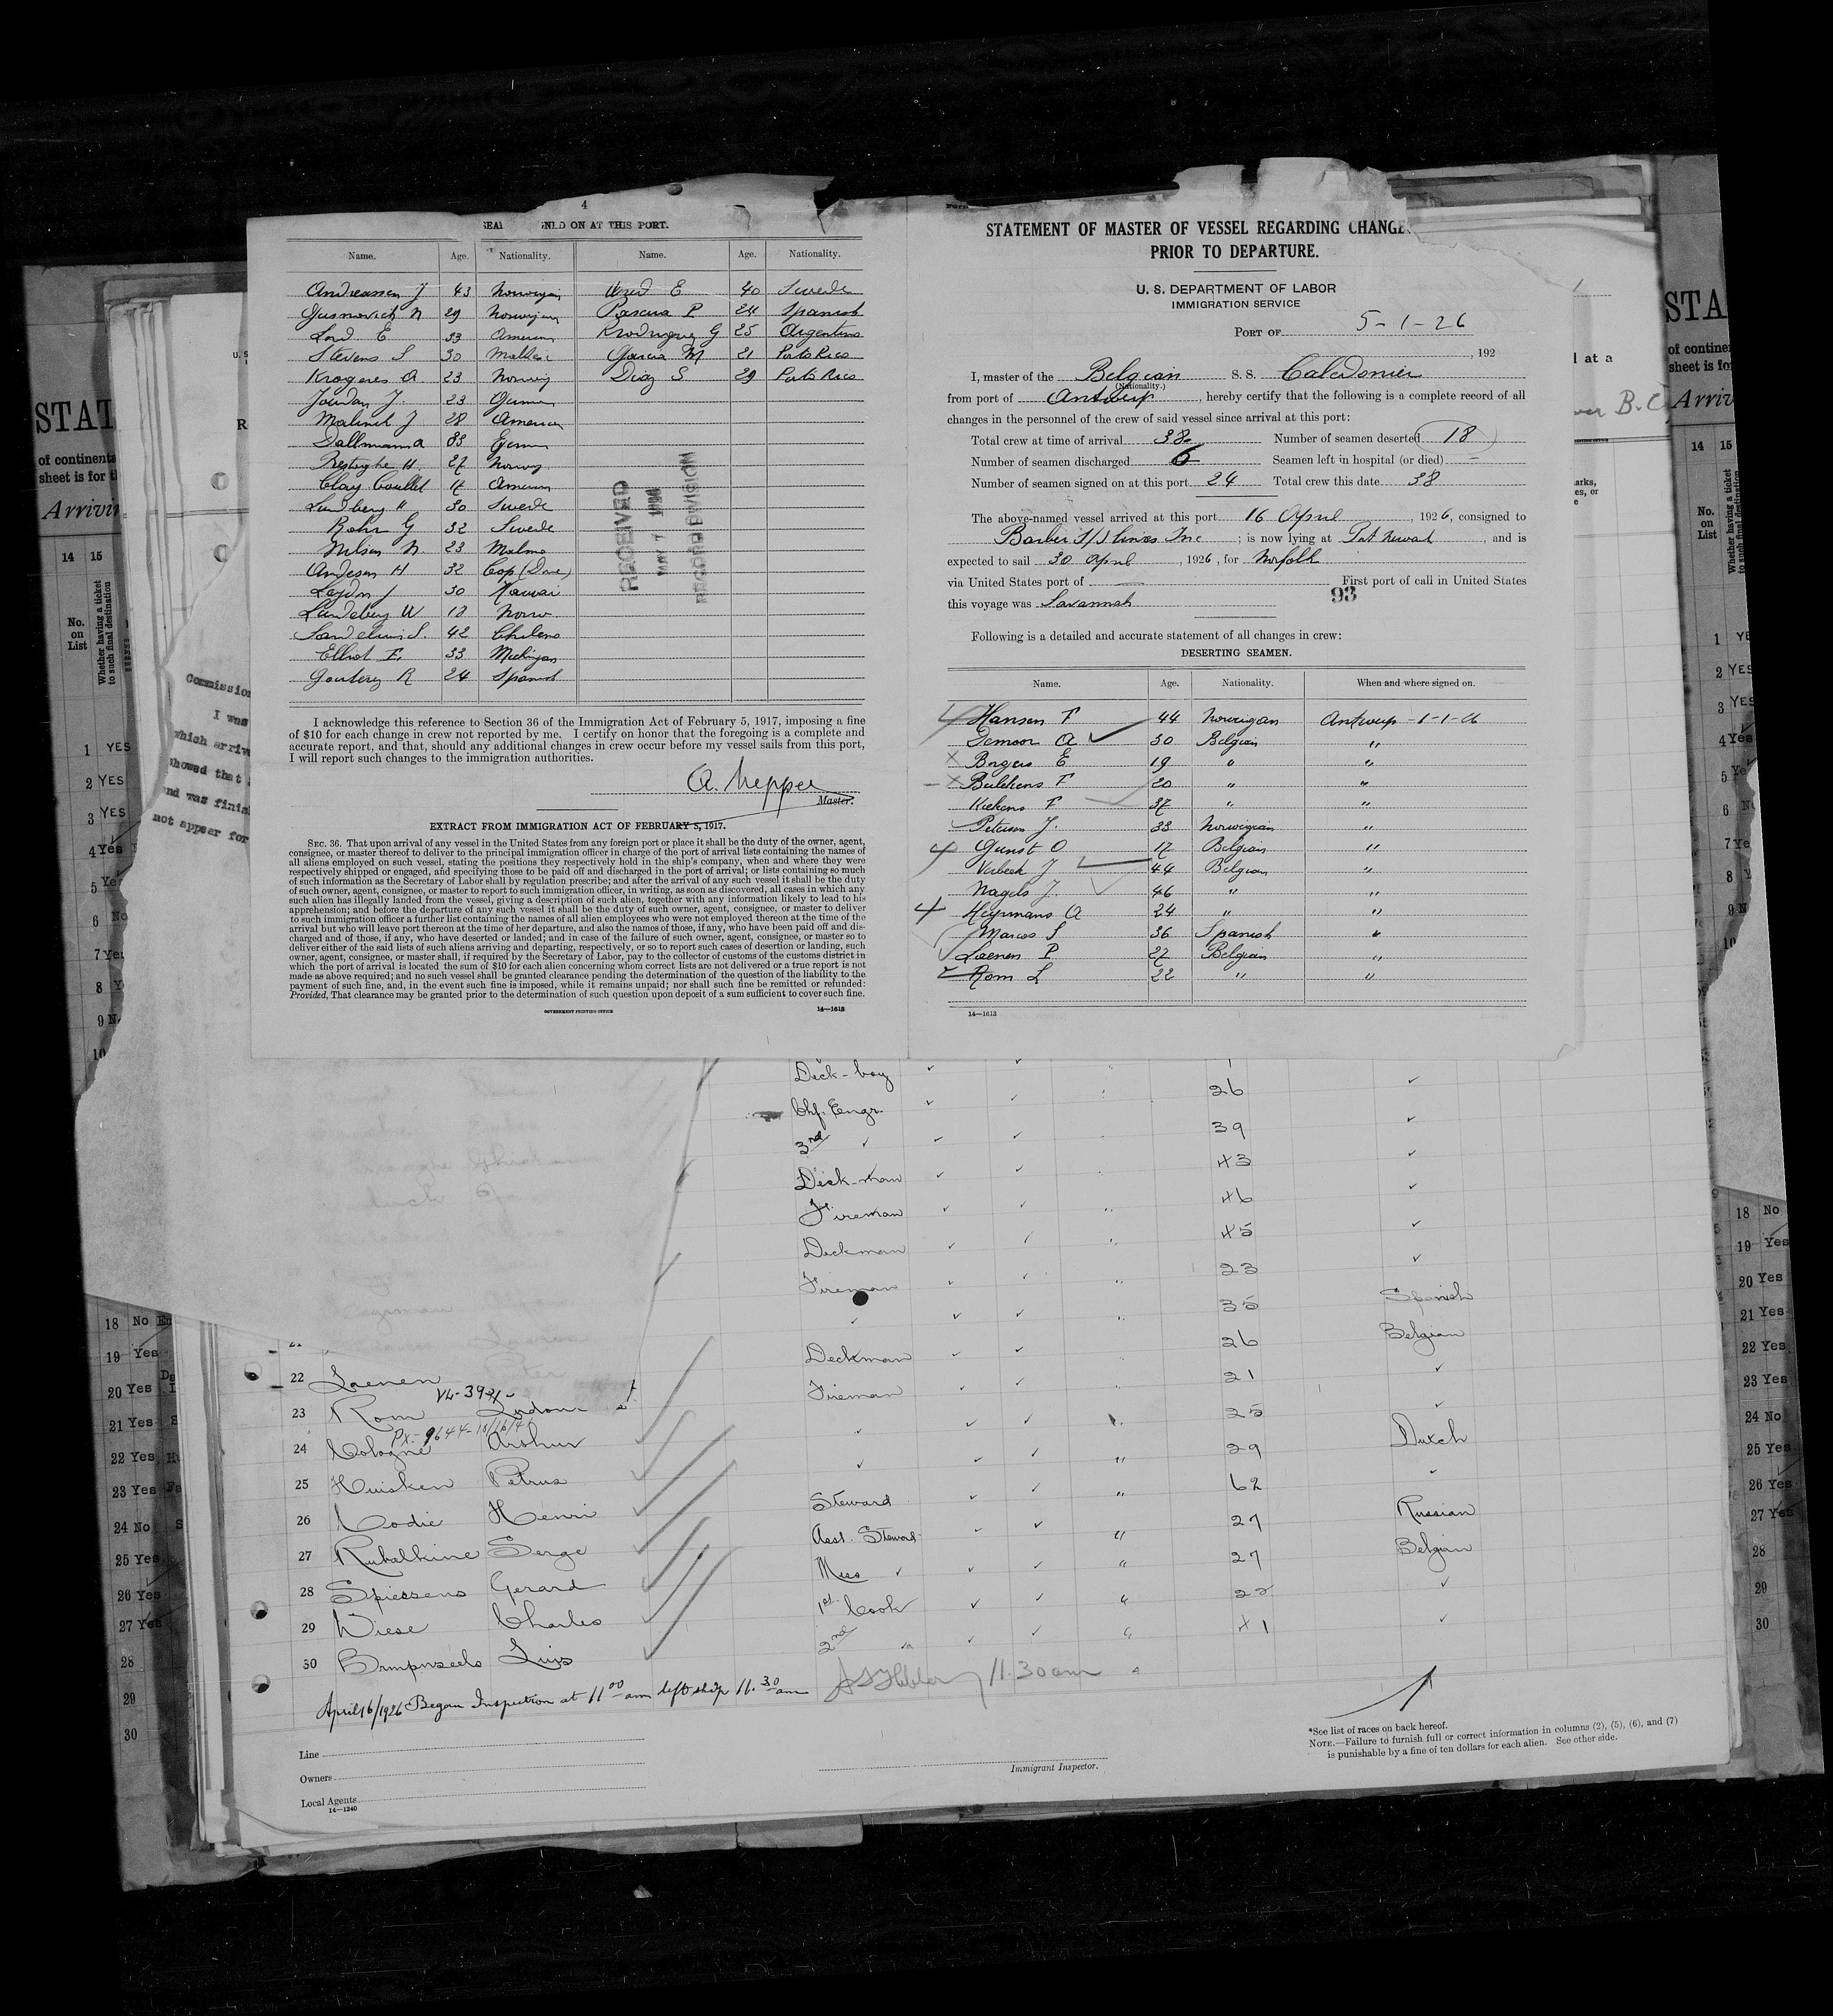 4
SEA NED ON AT THIS PORT.
Name. Age. Nationality. Name. Age. Nationality.
Andreassen J 43 Norwegian Wred E 40 Swede
N 29 Norwegian Pascua P 24 Spanish
Lord E 33 American Rrodriguez G 25 Argentino
Stevens S 30 Garcia M 21 Porto Rico
Krogenes A 23 Norwig Diaz S 29 Porto Rico
Jourdan J. 23 German
Malinek J 28 American
Dallmann A 33 German
H 27 Norwg
Clay 17 American
Lundberg H 30 Swede
Bohr G 32 Swede
Nilsen N 23 Malmo
Andesen H 32 Cop (Dane)
Leydn J 30 Hawai
Landeberg W 18 Norw
S. 42 Chileno
Elliot F. 33 Michigan
R 24 Spanish
RECEIVED
MAY 7 1926
RECORD DIVISION
I acknowledge this reference to Section 36 of the Immigration Act of February 5, 1917, imposing a fine
of $10 for each change in crew not reported by me. I certify on honor that the foregoing is a complete and
accurate report, and that, should any additional changes in crew occur before my vessel sails from this port,
I will report such changes to the immigration authorities.
A. Nepper
Master.
EXTRACT FROM IMMIGRATION ACT OF FEBRUARY 5, 1917.
SEC. 36. That upon arrival of any vessel in the United States from any foreign port or place it shall be the duty of the owner, agent,
consignee, or master thereof to deliver to the principal immigration officer in charge of the port of arrival lists containing the names of
all aliens employed on such vessel, stating the positions they respectively hold in the ship's company, when and where they were
respectively shipped or engaged, and specifying those to be paid off and discharged in the port of arrival; or lists containing so much
of such information as the Secretary of Labor shall by regulation prescribe; and after the arrival of any such vessel it shall be the duty
of such owner, agent, consignee, or master to report to such immigration officer, in writing, as soon as discovered, all cases in which any
such alien has illegally landed from the vessel, giving a description of such alien, together with any information likely to lead to his
apprehension; and before the departure of any such vessel it shall be the duty of such owner, agent, consignee, or master to deliver
to such immigration officer a further list containing the names of all alien employees who were not employed thereon at the time of the
arrival but who will leave port thereon at the time of her departure, and also the names of those, if any, who have been paid off and dis-
charged and of those, if any, who have deserted or landed; and in case of the failure of such owner, agent, consignee, or master so to
deliver either of the said lists of such aliens arriving and departing, respectively, or so to report such cases of desertion or landing, such
owner, agent, consignee, or master shall, if required by the Secretary of Labor, pay to the collector of customs of the customs district in
which the port of arrival is located the sum of $10 for each alien concerning whom correct lists are not delivered or a true report is not
made as above required; and no such vessel shall be granted clearance pending the determination of the question of the liability to the
payment of such fine, and, in the event such fine is imposed, while it remains unpaid; nor shall such fine be remitted or refunded:
Provided, That clearance may be granted prior to the determination of such question upon deposit of a sum sufficient to cover such fine.
GOVERNMENT PRINTING OFFICE 14—1613
STATEMENT OF MASTER OF VESSEL REGARDING CHANGE
PRIOR TO DEPARTURE.
U. S. DEPARTMENT OF LABOR
IMMIGRATION SERVICE
PORT OF 5-1-26
, 192
I, master of the Belgian S. S. Caledonier
(Nationality.)
from port of Antwerp, hereby certify that the following is a complete record of all
changes in the personnel of the crew of said vessel since arrival at this port:
Total crew at time of arrival 38 Number of seamen deserted 18
Number of seamen discharged 6 Seamen left in hospital (or died) —
Number of seamen signed on at this port 24 Total crew this date 38
The above-named vessel arrived at this port 16 April, 1926, consigned to
Barber S/S Lines Inc; is now lying at Pot Newark, and is
expected to sail 30 April, 1926, for Norfolk
via United States port of — First port of call in United States
this voyage was Savannah 93
Following is a detailed and accurate statement of all changes in crew:
DESERTING SEAMEN.
Name. Age. Nationality. When and where signed on.
Hansen F 44 Norwegian Antwerp -1-1-26
Demoor A 30 Belgian "
Bogers E 19 " "
Bulckens F 20 " "
Kiekens F 37 " "
Petersen J. 33 Norwigian "
Gunst O 17 Belgian "
Verbeek J 44 Belgian "
Nagels J. 46 " "
Heyrmans A 24 " "
Marcos S 36 Spanish "
Laenen P 27 Belgian "
Rom L 22 " "
14—1613
Deck-boy
Chf. Engr. 26
3rd 39
Deck-man 43
Fireman 46
Deckman 45
Fireman 23
35 Spanish
Deckman 26 Belgian
22 Laenen Fireman 21
VL-3921-
23 Rom Ludovic 25
PX-9644-10/16/4
24 Cologne Arthur 29 Dutch
25 Huisken Petrus Steward 62
26 Codie Henri Asst. Steward 27 Russian
27 Rukalkine Serge Mess 27 Belgian
28 Spiessens Gerard 1st Cook 22
29 Wiese Charles 2nd 41
30 Luis
April 16/1926 Began Inspection at 11 00 am left ship 11.30 am 11.30 am
Line
Owners
Local Agents
14—1240
Immigrant Inspector.
*See list of races on back hereof.
NOTE.—Failure to furnish full or correct information in columns (2), (5), (6), and (7)
is punishable by a fine of ten dollars for each alien. See other side.
STAT
of continenta
sheet is for t
Arrivin
14 15
No. on List
Whether having a ticket to such final destination
1 YES
2 YES
3 YES
4 Yes
5 Yes
6 No
7 Yes
8 Y
9 N
10
18 No
19 Yes
20 Yes
21 Yes
22 Yes
23 Yes
24 No
25 Yes
26 Yes
27 Yes
28
29
30
Commission
I was
which arrive
showed that
and was finis
not appear for
STA
of contine
sheet is fo
Arriv
14 15
No. on List
Whether having a ticket to such final destination
1 YE
2 YES
3 YES
4 Yes
5 Ye
6 N
7 Ye
8 Y
9 N
10
18 No
19 Yes
20 Yes
21 Yes
22 Yes
23 Yes
24 No
25 Yes
26 Yes
27 Yes
28
29
30
d at a
ver B.C.